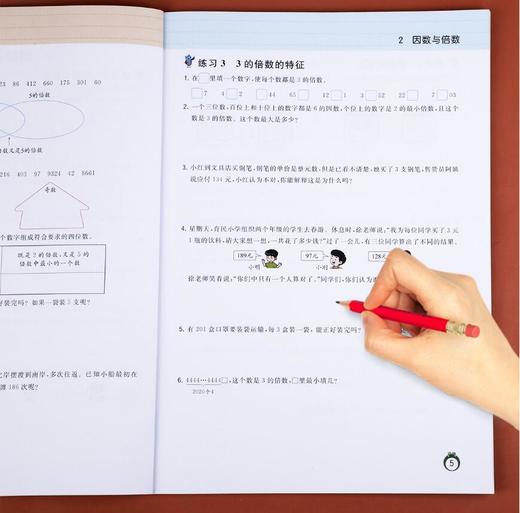 23 86 412 660 175 301 60
5的倍数
数又是5的倍数
216 403 97 9324 42 8661
奇数
个数字组成符合要求的四位数。
既是2的倍数，又是5的
倍数中最小的一个数
好装完吗？如果一袋装5支呢？
北岸摆渡到南岸，多次往返。已知小船最初在
渡186次呢？
2 因数与倍数
练习3 3的倍数的特征
1. 在□里填一个数字，使每个数都是3的倍数。
□7 4□2 □44 65□ 12□1 3□52 □22 7□03
2. 一个三位数，百位上和十位上的数字都是6的因数，个位上的数字是2的最小倍数，且这个
数是3的倍数。这个数最大是多少？
3. 小红到文具店买钢笔，钢笔的单价是整元数，但是已看不清楚，她买了3支钢笔，售货员阿姨
说应付134元，小红认为不对，你能解释这是为什么吗？
4. 星期天，育民小学组织两个年级的学生去春游。休息时，徐老师说：“我为每位同学买了3元
1瓶的饮料，请大家想一想，一共花了多少钱？”过了一会儿，有三位同学算出了不同的结果。
189元 97元 128元
小明 小刚
徐老师笑着说：“你们中只有一个人算对了。”同学们，你们认为
5. 有201盒口罩要装袋运输，每3盒装一袋，能正好装完吗？
6. 4444…4444□，这个数是3的倍数，□里最小填几？
2020个4
5